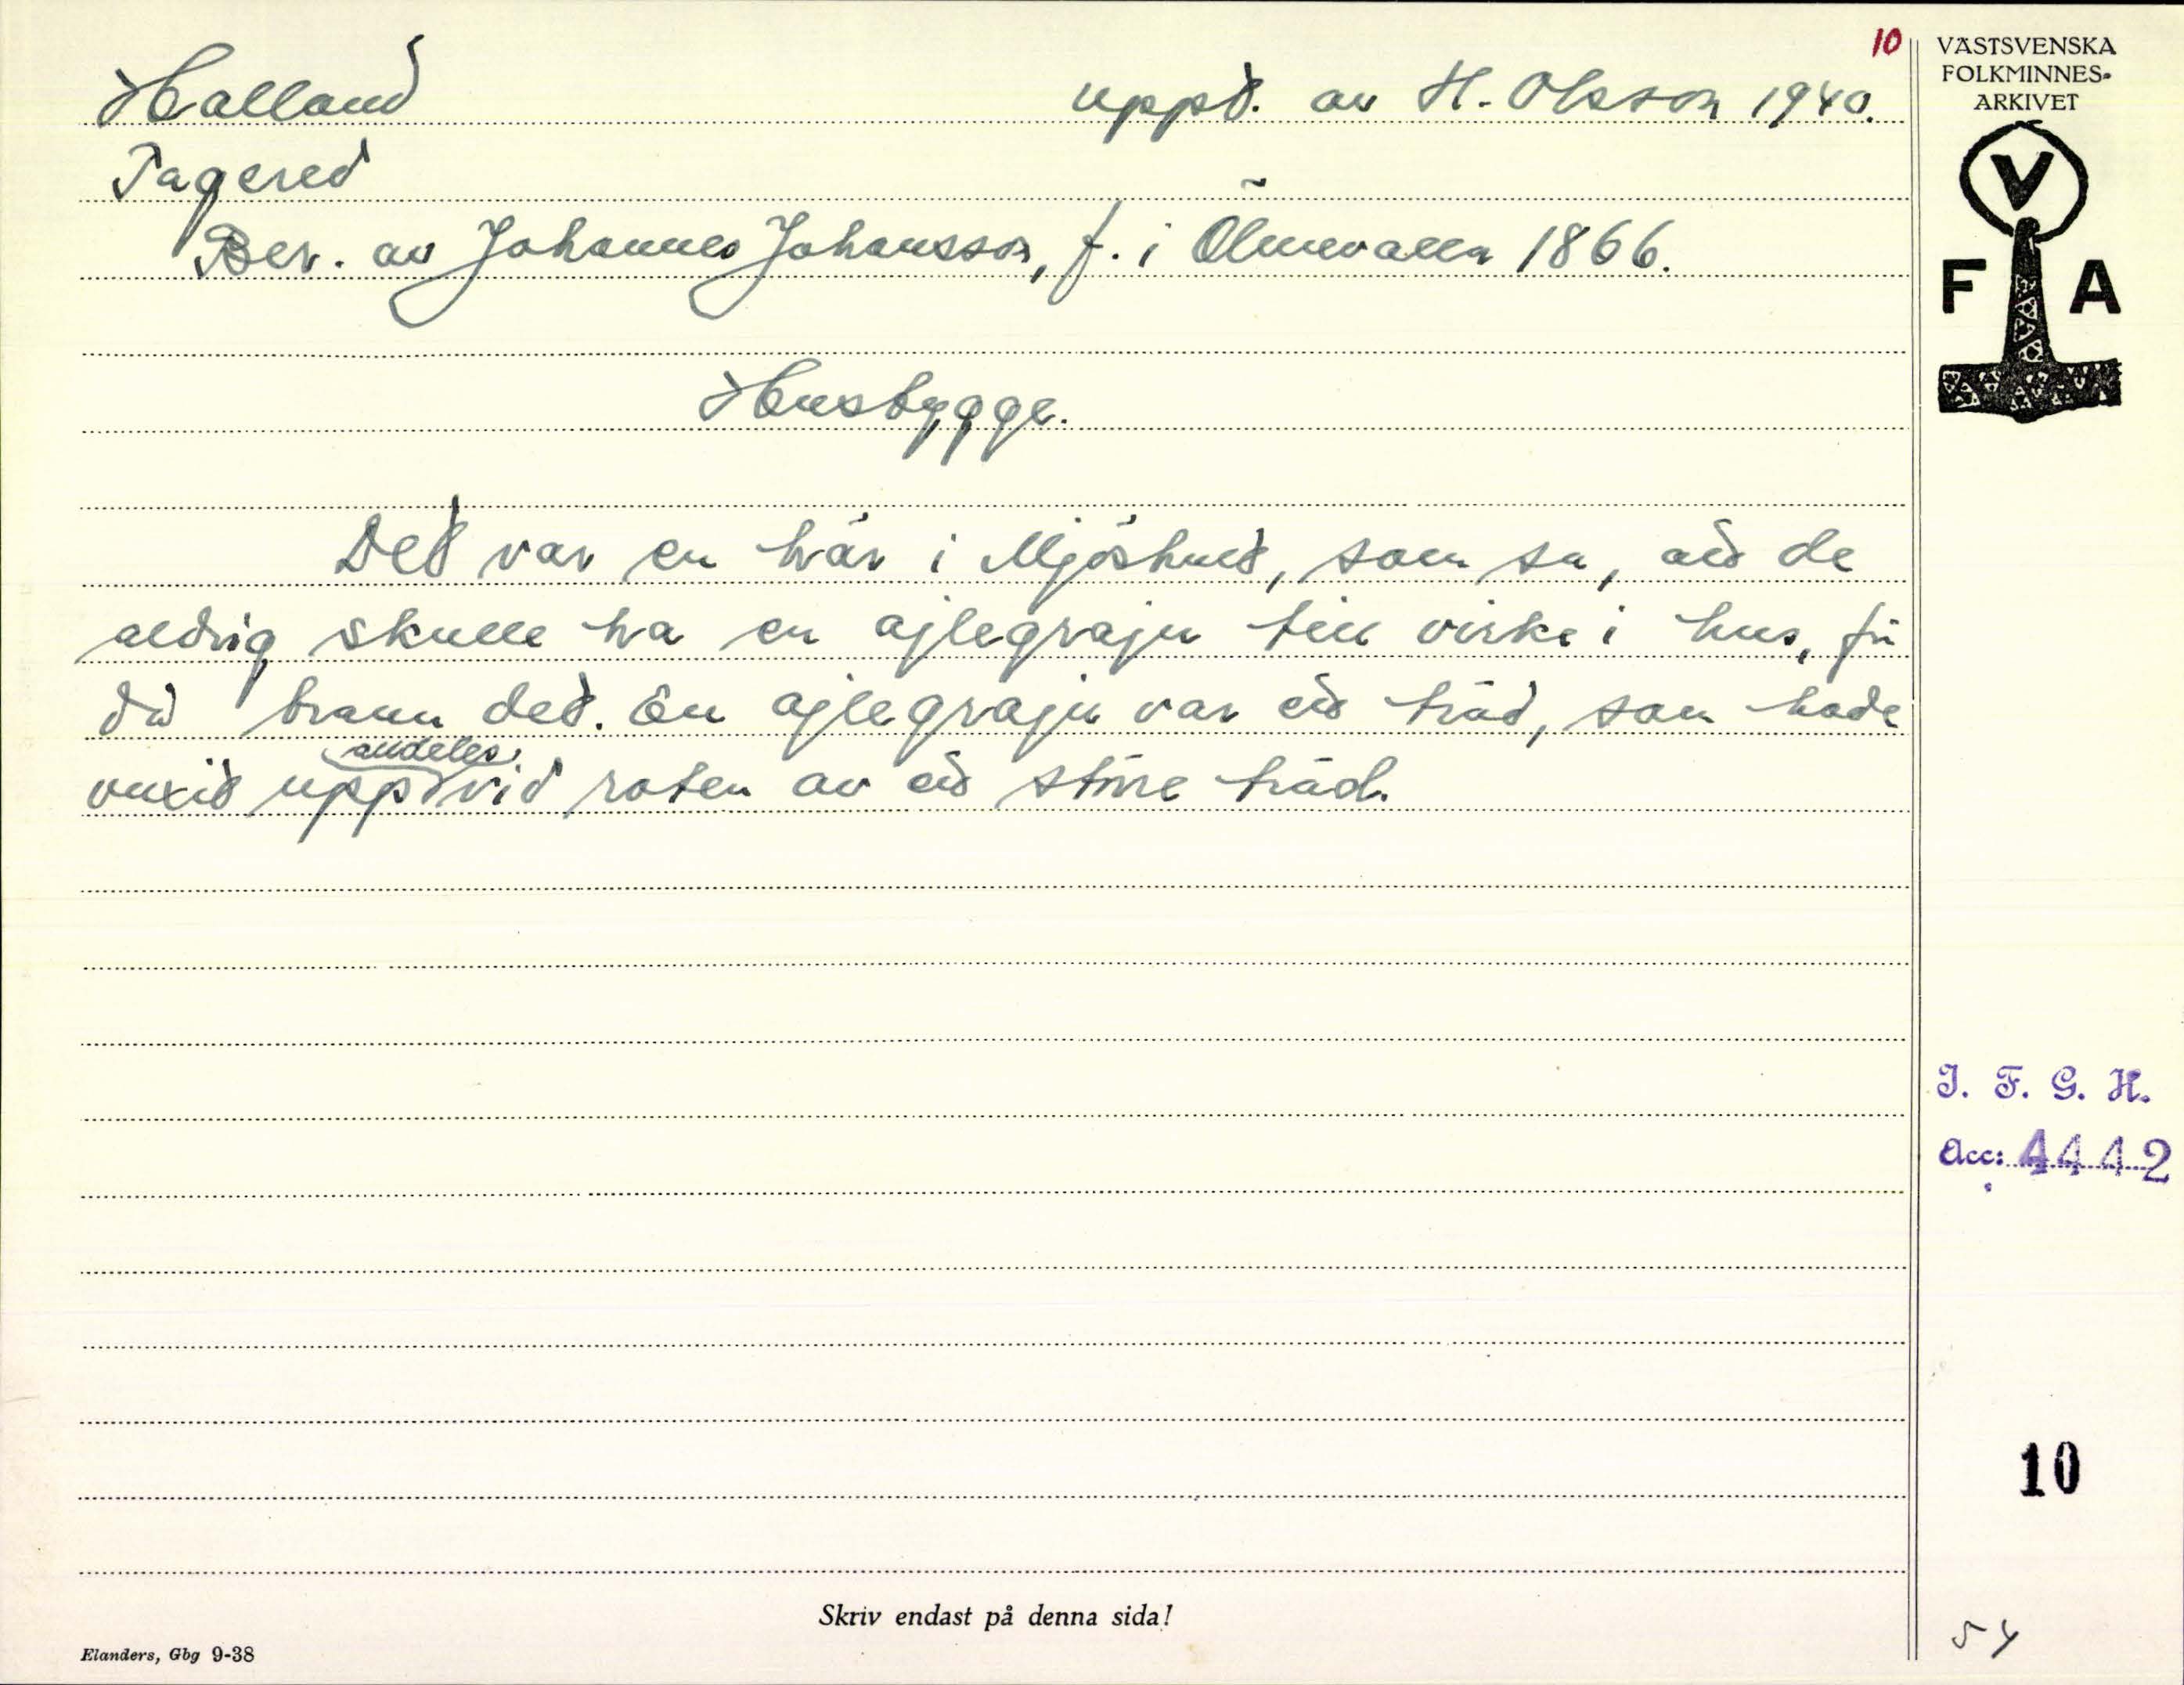 10
Halland
uppt. av H. Olsson 1940.
Fagered
Ber. av Johannes Johansson, f. i Ölmevalla 1866.
Husbygge.
Det var en här i Mjöshult, som sa, att de
aldrig skulle ha en ajlegraju till virke i hus, för
då brann det. En ajlegraju var ett träd, som hade
vuxit upp alldeles vid roten av ett större träd.
VÄSTSVENSKA
FOLKMINNES-
ARKIVET
V
F A
I. F. G. H.
Acc: 4442
10
54
Skriv endast på denna sida!
Elanders, Gbg 9-38